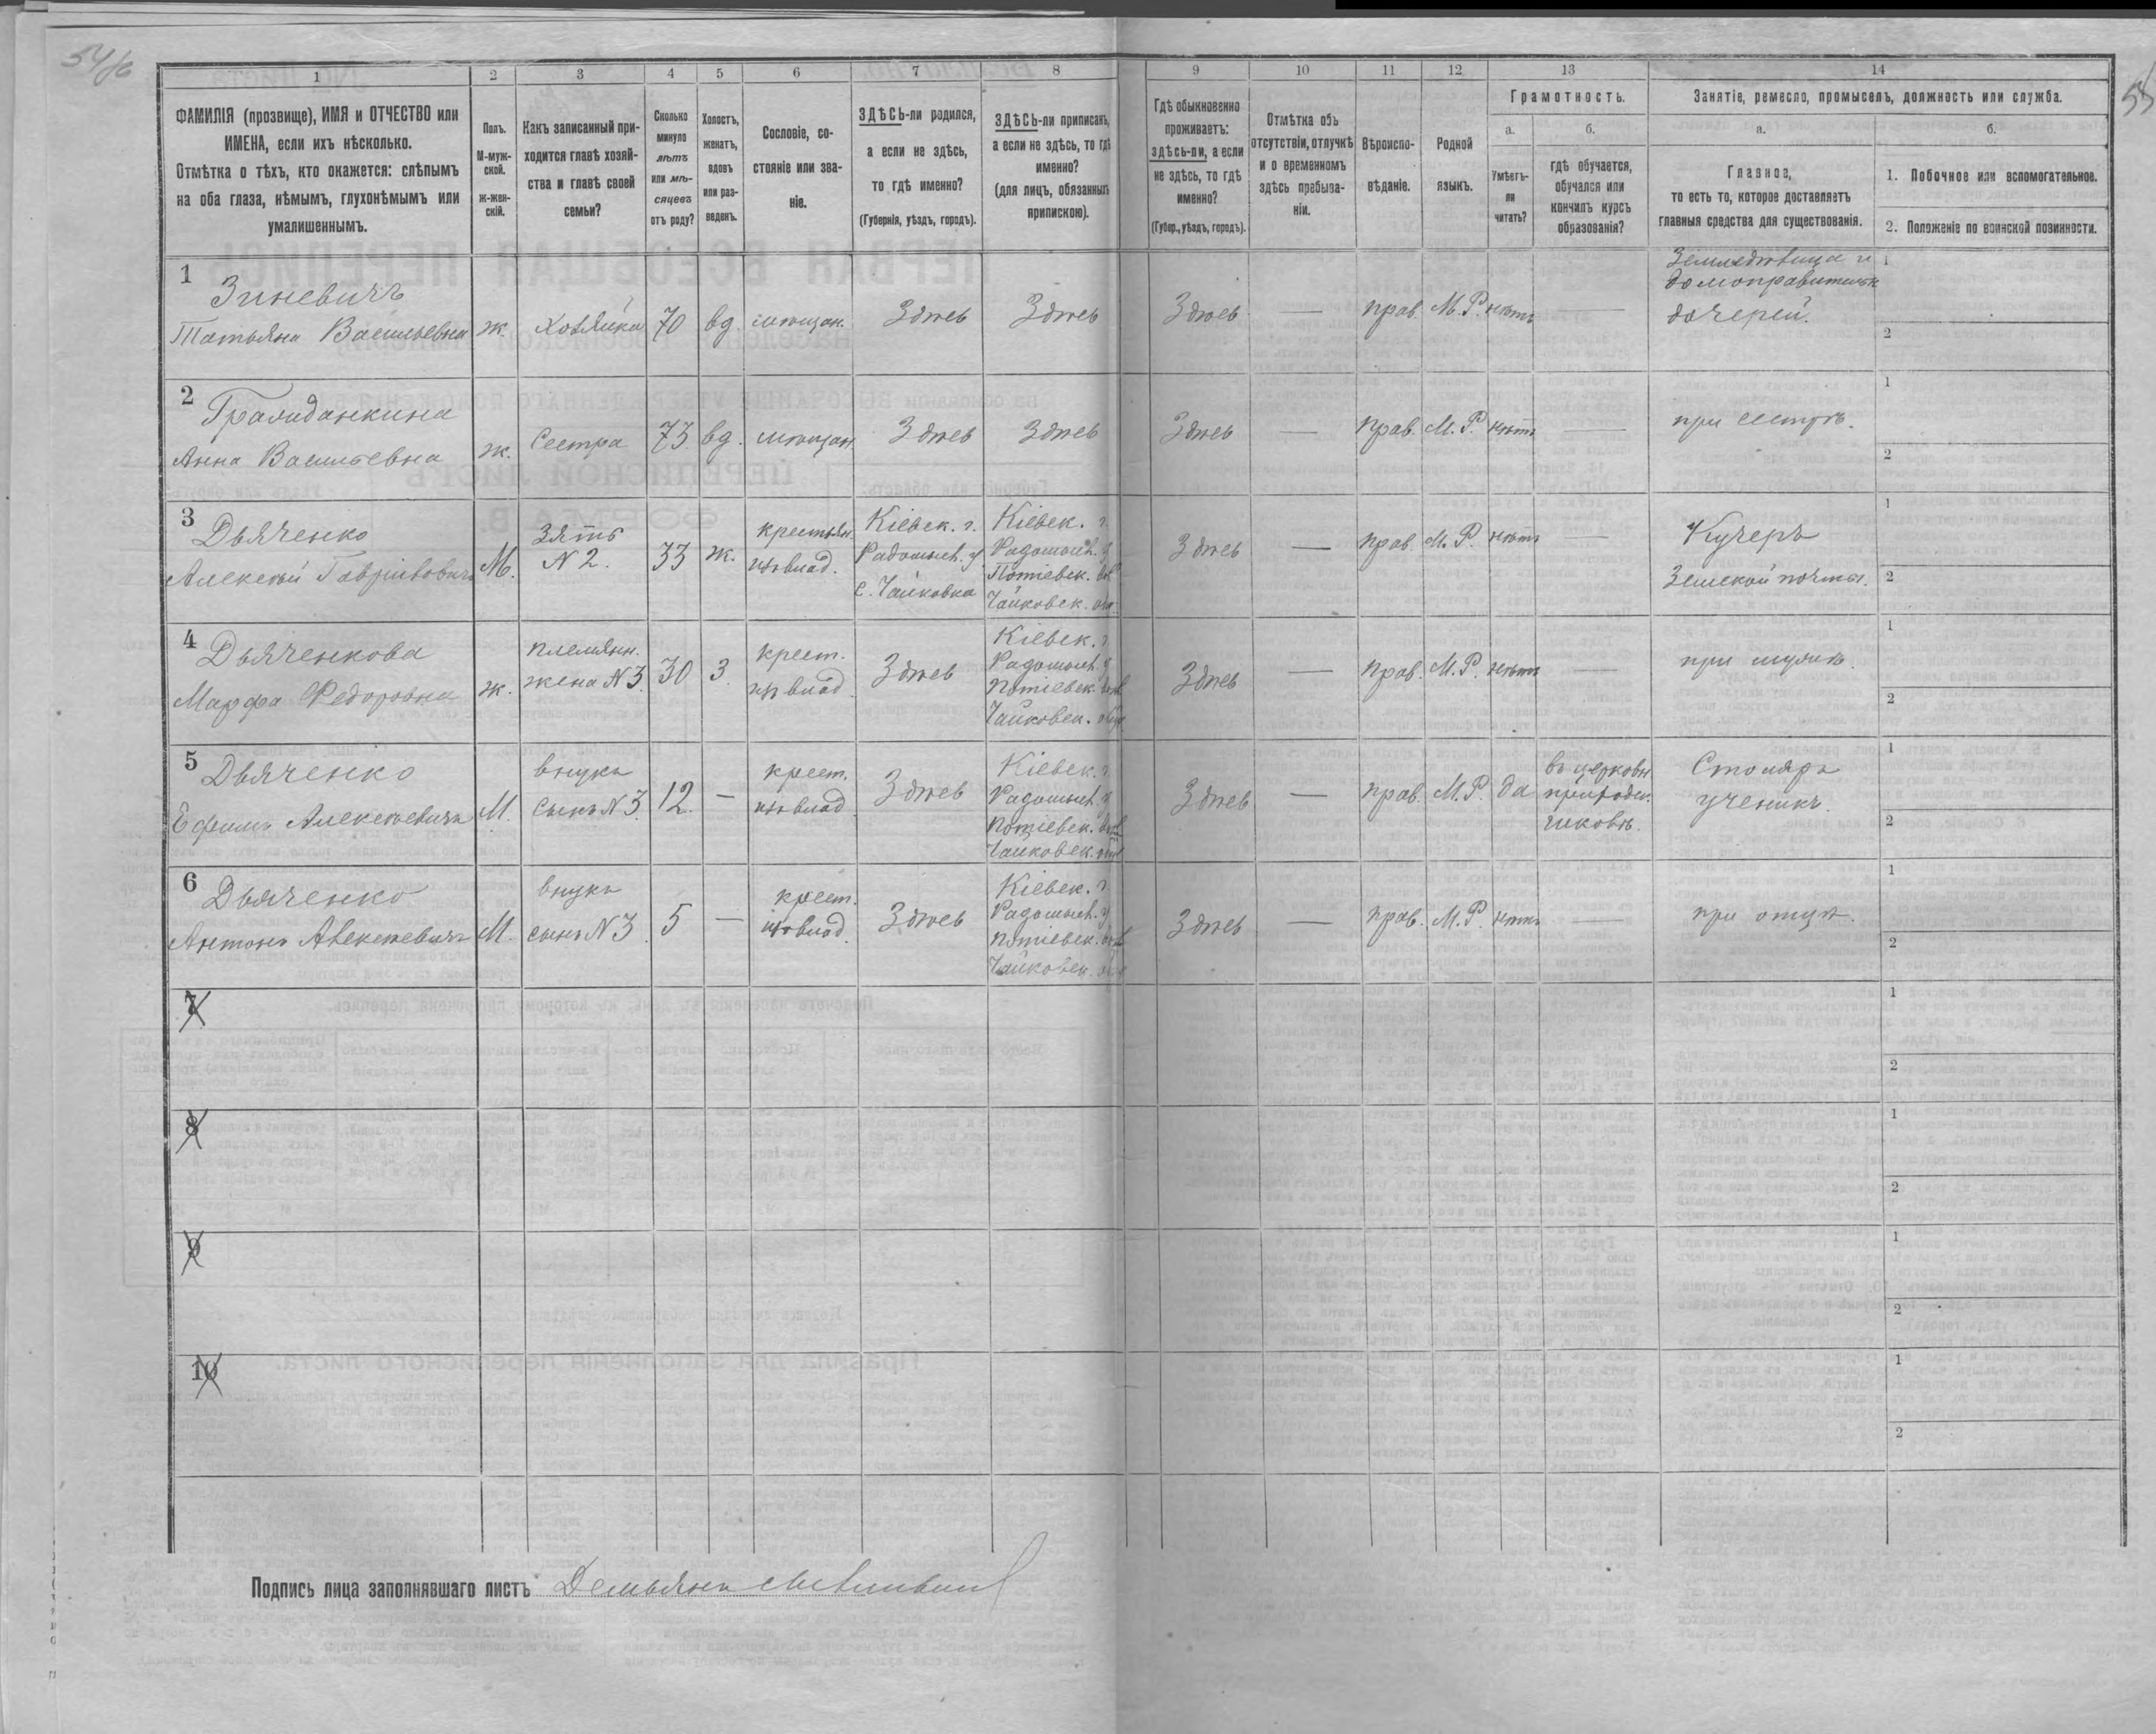 54/б
58
1
2
3
4
5
6
7
8
9
10
11
12
13
14
ФАМИЛІЯ (прозвище), ИМЯ и ОТЧЕСТВО или
ИМЕНА, если ихъ нѣсколько.
Отмѣтка о тѣхъ, кто окажется: слѣпымъ
на оба глаза, нѣмымъ, глухонѣмымъ или
умалишеннымъ.
Полъ.
М-муж-
ской.
ж-жен-
скій.
Какъ записанный при-
ходится главѣ хозяй-
ства и главѣ своей
семьи?
Сколько
минуло
лѣтъ
или мѣ-
сяцевъ
отъ роду?
Холостъ,
женатъ,
вдовъ
или раз-
веденъ.
Сословіе, со-
стояніе или зва-
ніе.
ЗДѢСЬ-ли родился,
а если не здѣсь,
то гдѣ именно?
(Губернія, уѣздъ, городъ).
ЗДѢСЬ-ли приписанъ,
а если не здѣсь, то гдѣ
именно?
(для лицъ, обязанныхъ
припискою).
Гдѣ обыкновенно
проживаетъ:
здѣсь-ли, а если
не здѣсь, то гдѣ
именно?
(Губер., уѣздъ, городъ).
Отмѣтка объ
отсутствіи, отлучкѣ
и о временномъ
здѣсь пребыва-
ніи.
Вѣроиспо-
вѣданіе.
Родной
языкъ.
Грамотность.
а.
Умѣетъ-
ли
читать?
б.
гдѣ обучается,
обучался или
кончилъ курсъ
образованія?
Занятіе, ремесло, промыселъ, должность или служба.
а.
Главное,
то есть то, которое доставляетъ
главныя средства для существованія.
б.
1. Побочное или вспомогательное.
2. Положеніе по воинской повинности.
1
Зиневичъ
Татьяна Васильевна
ж.
Хозяйка
70
вд.
мѣщан.
Здѣсь
Здѣсь
Здѣсь
—
прав.
М. Р.
нѣтъ
—
домоправительн.
дочерей.
1
2
2
Гражданкина
Анна Васильевна
ж.
Сестра
73
вд.
мѣщан.
Здѣсь
Здѣсь
Здѣсь
—
прав.
М. Р.
нѣтъ
—
при сестрѣ.
1
2
3
Дьяченко
Алексѣй Гавріиловичъ
М.
Зять
N 2.
33
ж.
крестьян.
изъ влад.
Кіевск. г.
Радомысл. у
с. Чайковка
Кіевск. г.
Радомысл. у
Потіевск. вол
Чайковск. общ.
Здѣсь
—
прав.
М. Р.
нѣтъ
—
Кучеръ
Земской почты.
1
2
4
Дьяченкова
Марфа Федоровна
ж.
племянн.
жена N 3
30
З.
крест.
изъ влад.
Здѣсь
Кіевск. г.
Радомысл. у
Потіевск. вол
Чайковск. общ.
Здѣсь
—
прав.
М. Р.
нѣтъ
—
при мужѣ.
1
2
5
Дьяченко
Ефимъ Алексѣевичъ
М.
внукъ
сынъ N 3
12.
—
крест.
изъ влад
Здѣсь
Кіевск. г.
Радомысл. у
Потіевск. вол
Чайковск. общ
Здѣсь
—
прав.
М. Р.
да
въ церковн.
приходск.
школѣ.
Столяръ
ученикъ.
1
2
6
Дьяченко
Антонъ Алексѣевичъ
М.
внукъ
сынъ N 3
5
—
крест.
изъ влад.
Здѣсь
Кіевск. г.
Радомысл. у
Потіевск. вол
Чайковск. общ
Здѣсь
—
прав.
М. Р.
нѣтъ
—
при отцѣ.
1
2
7
1
2
8
1
2
9
1
2
10
1
2
Подпись лица заполнявшаго листъ Демьянъ